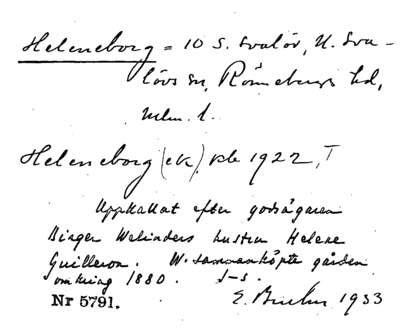 Heleneborg = 10 S. Svalöv, N. Sva-
lövs sn, Rönnebergs hd,
Mlm. l.
Heleneborg (ek). 1922, T
Uppkallat efter godsägaren
Birger Welinders hustru Helene
Guilleron. W. sammanköpte gården
omkring 1880. J-s.
Nr 5791. E. 1933